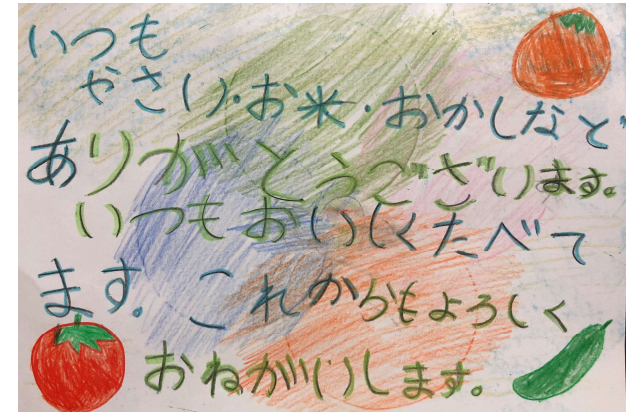 いつも
やさい・お米・おかしなど
ありがとうございます。
いつもおいしくたべて
ます。これからもよろしく
おねがいします。